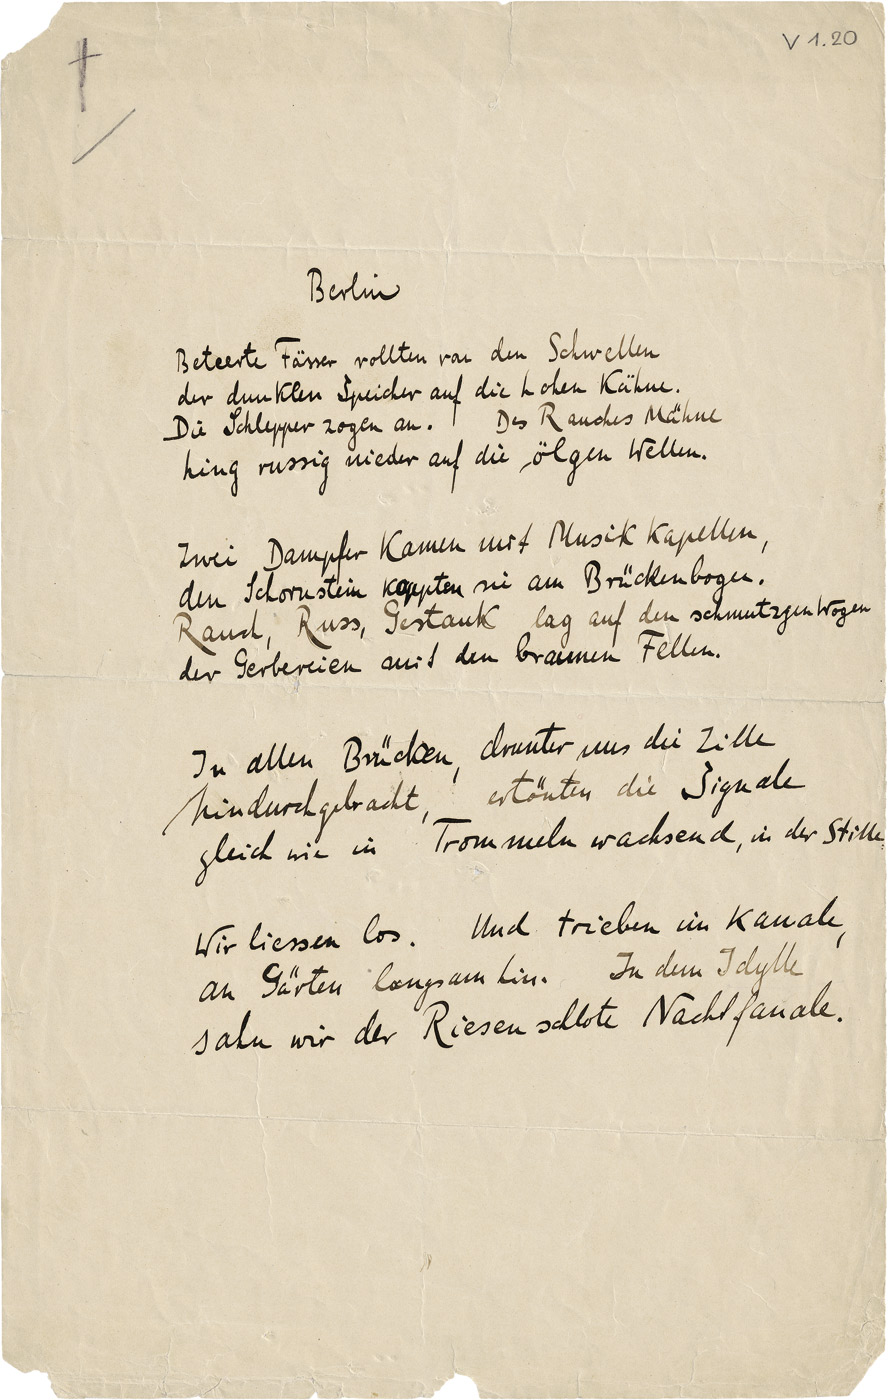 V 1.20
Berlin
Beteerte Fässer rollten von den Schwellen
der dunklen Speicher auf die hohen Kähne.
Die Schlepper zogen an. Des Rauches Mähne
hing russig nieder auf die ölgen Wellen.
Zwei Dampfer kamen mit Musikkapellen,
den Schornstein kappten sie am Brückenbogen.
Rauch, Russ, Gestank lag auf den schmutzgen Wogen
der Gerbereien mit den braunen Fellen.
In allen Brücken, drunter uns die Zille
hindurchgebracht, ertönten die Signale
gleich wie in Trommeln wachsend, in der Stille.
Wir liessen los. Und trieben im Kanale,
an Gärten langsam hin. In dem Idylle
sahn wir der Riesenschlote Nachtfanale.